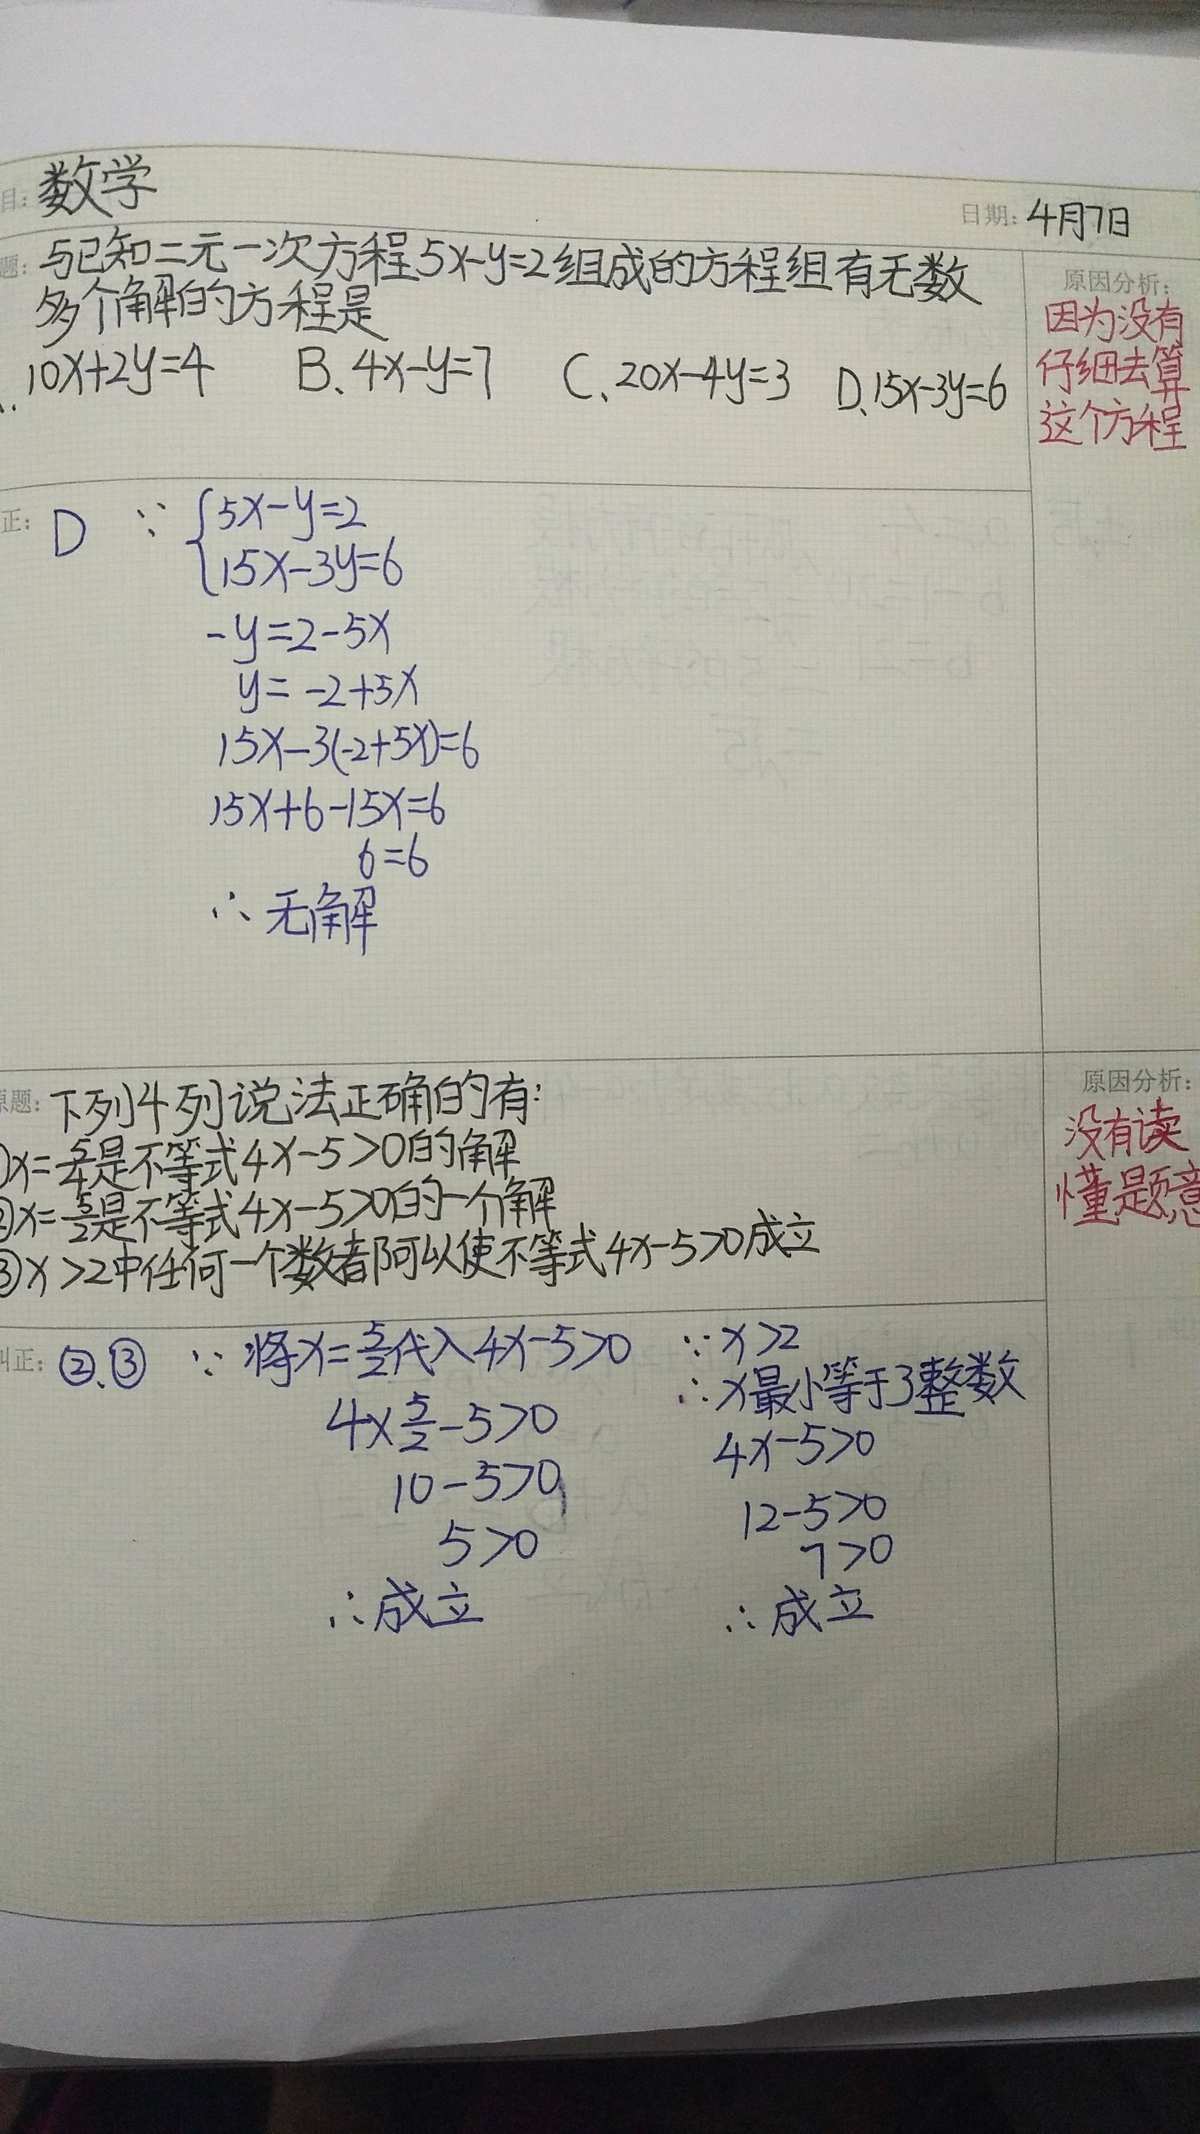 目: 数学
日期: 4月7日
题: 与已知二元一次方程5x-y=2组成的方程组有无数
多个解的方程是
10x+2y=4 B、4x-y=7 C、20x-4y=3 D、15x-3y=6
原因分析:
因为没有
仔细去算
这个方程
正: D ∵ {5x-y=2
15x-3y=6
-y=2-5x
y=-2+5x
15x-3(-2+5x)=6
15x+6-15x=6
6=6
∴ 无解
原题: 下列4列说法正确的有:
①x=5/4是不等式4x-5>0的解
②x=5/2是不等式4x-5>0的一个解
③x>2中任何一个数都可以使不等式4x-5>0成立
原因分析:
没有读
懂题意
纠正: ②、③ ∵ 将x=5/2代入4x-5>0
4×5/2-5>0
10-5>0
5>0
∴成立
∵x>2
∴x最小等于3整数
4x-5>0
12-5>0
7>0
∴成立